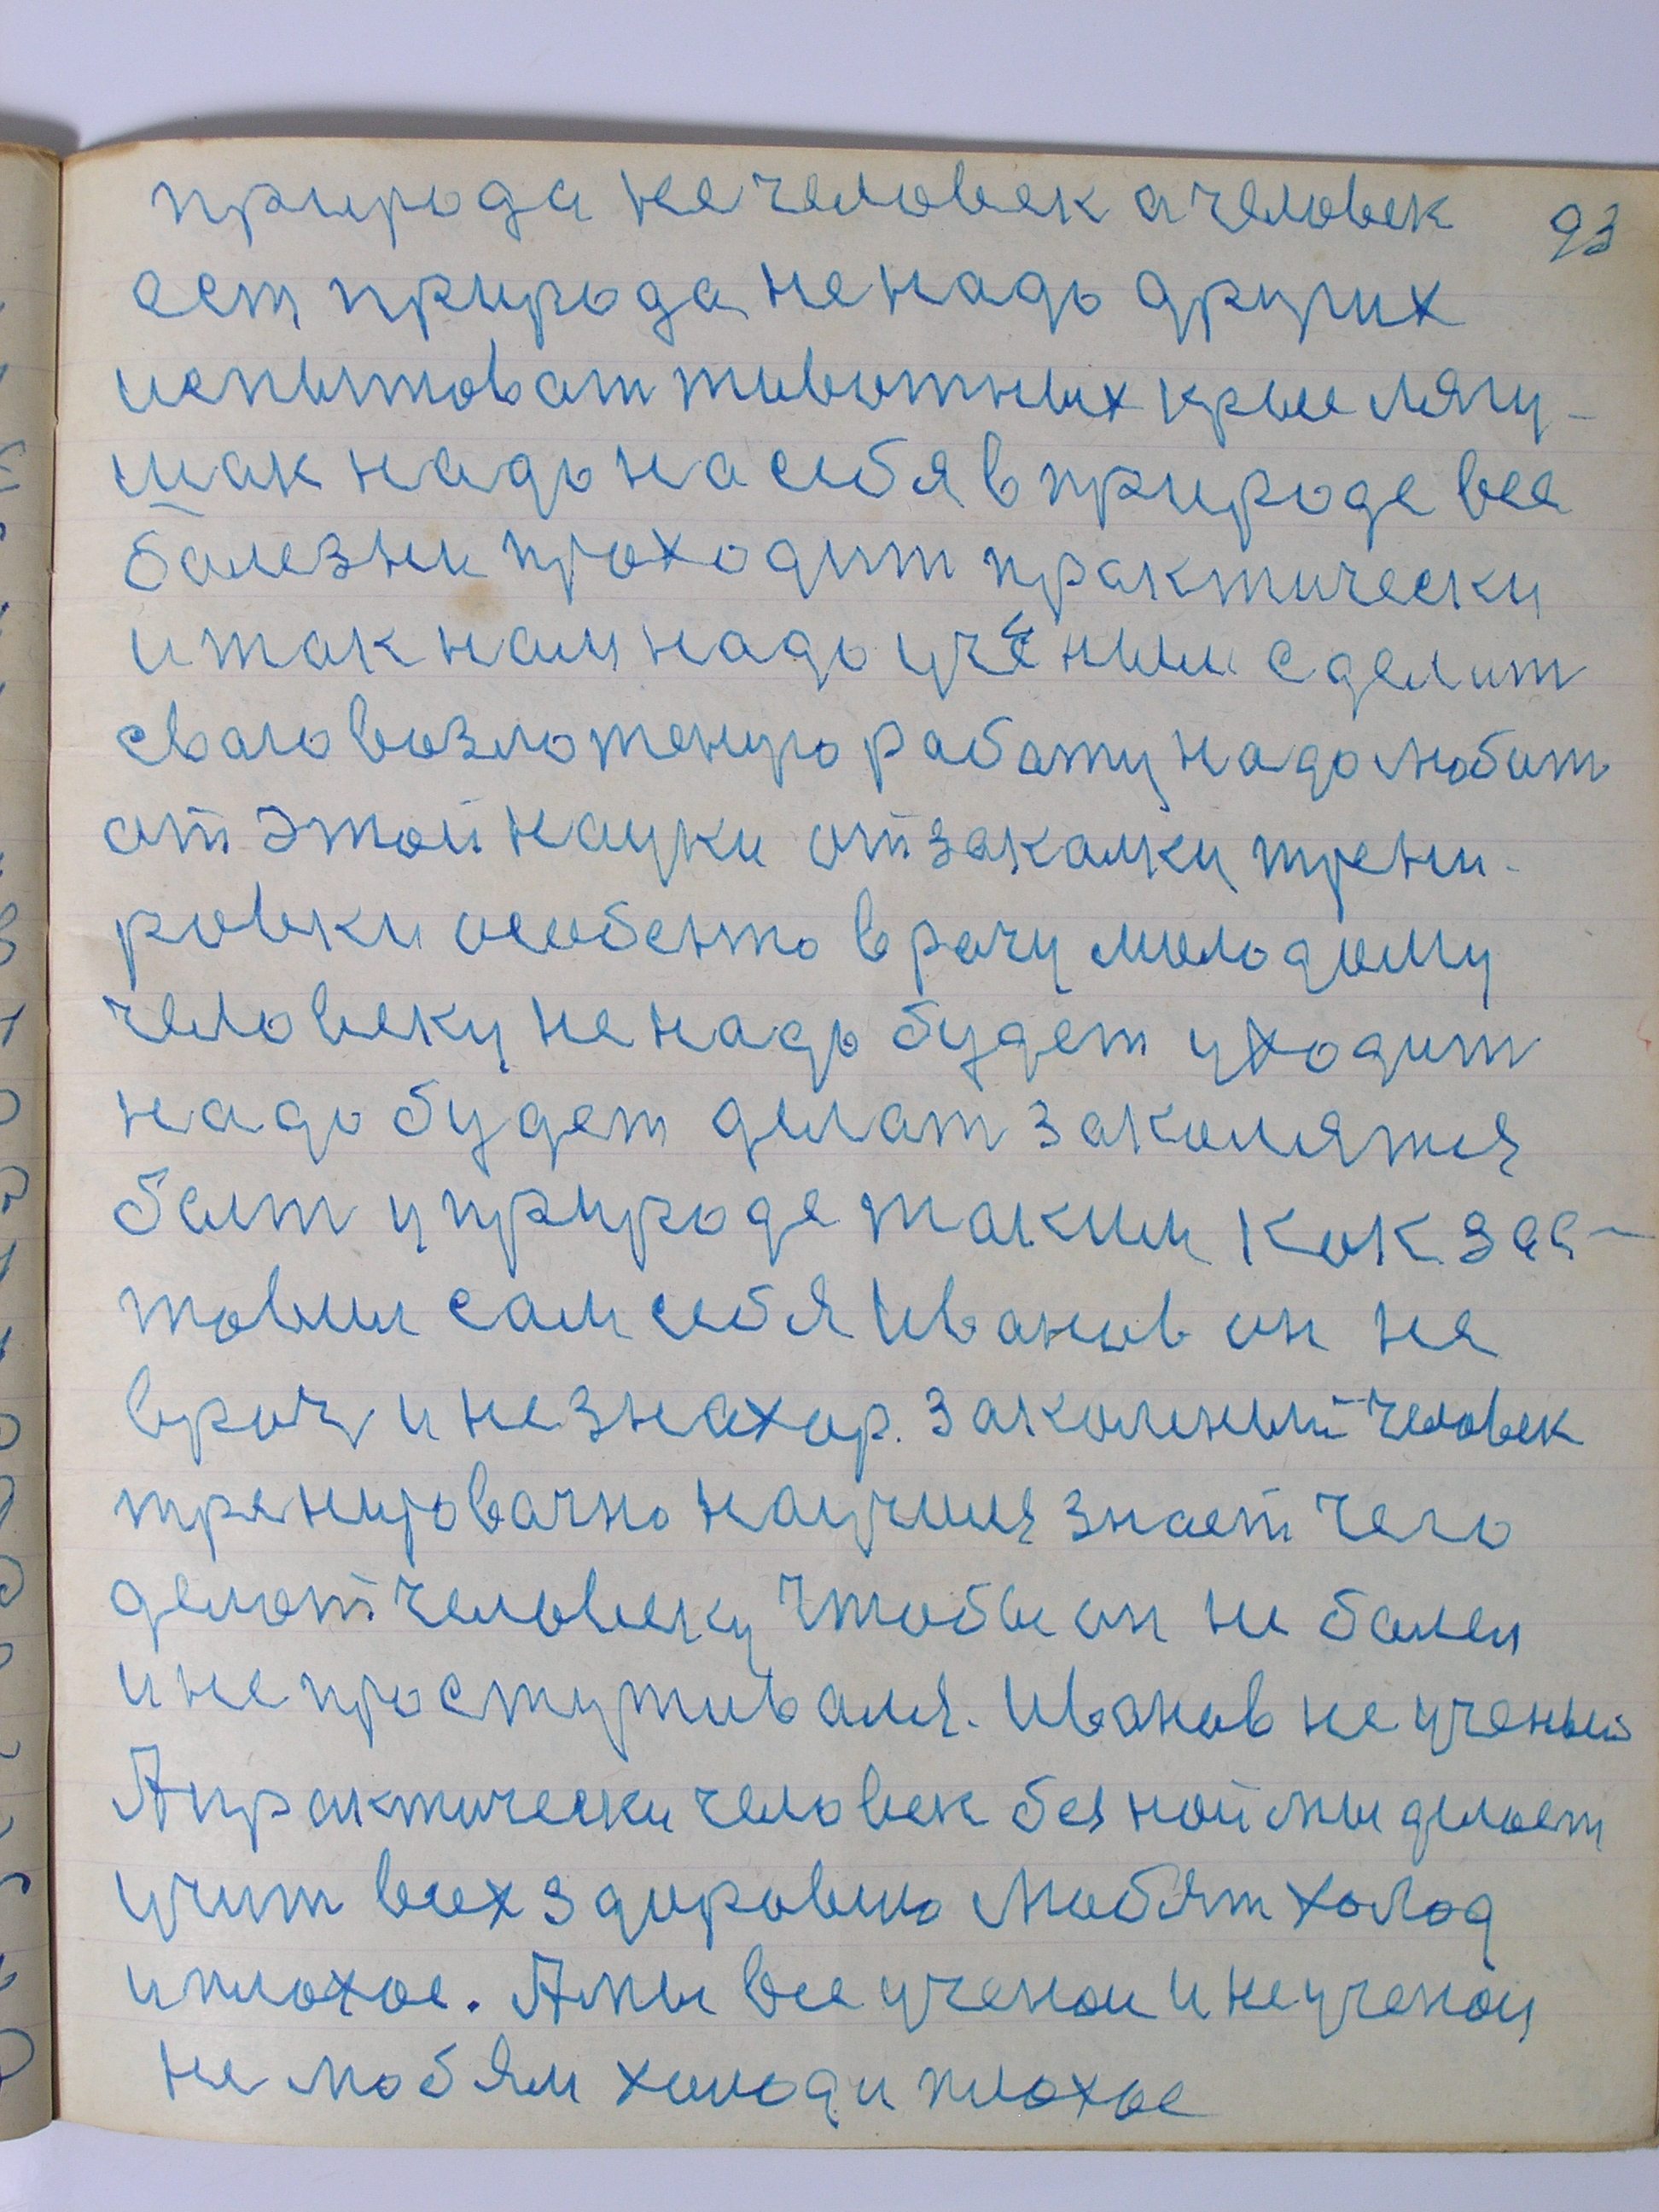 природа не человек а человек 93
ест природа не надо других
испытоват животных крыс лягу-
шак надо на себя в природе все
болезни проходит практически
и так нам надо учёным сделит
сваю возложеную работу надо любит
от этой науки от закалки трени-
ровки особенно врачу молодому
человеку не надо будет уходит
надо будет делат закалятся
быт у природе таким как зас-
товил сам себя Иванов он не
врач и не знахар. закаленый человек
тренировачно научился знает чего
делат человеку чтобы он не болел
и не простуживался. Иванов не ученый
А практически человек мы делает
учит всех здоровию любят холод
и плохое. А мы все ученои и не ученои
не любям холод и плохое